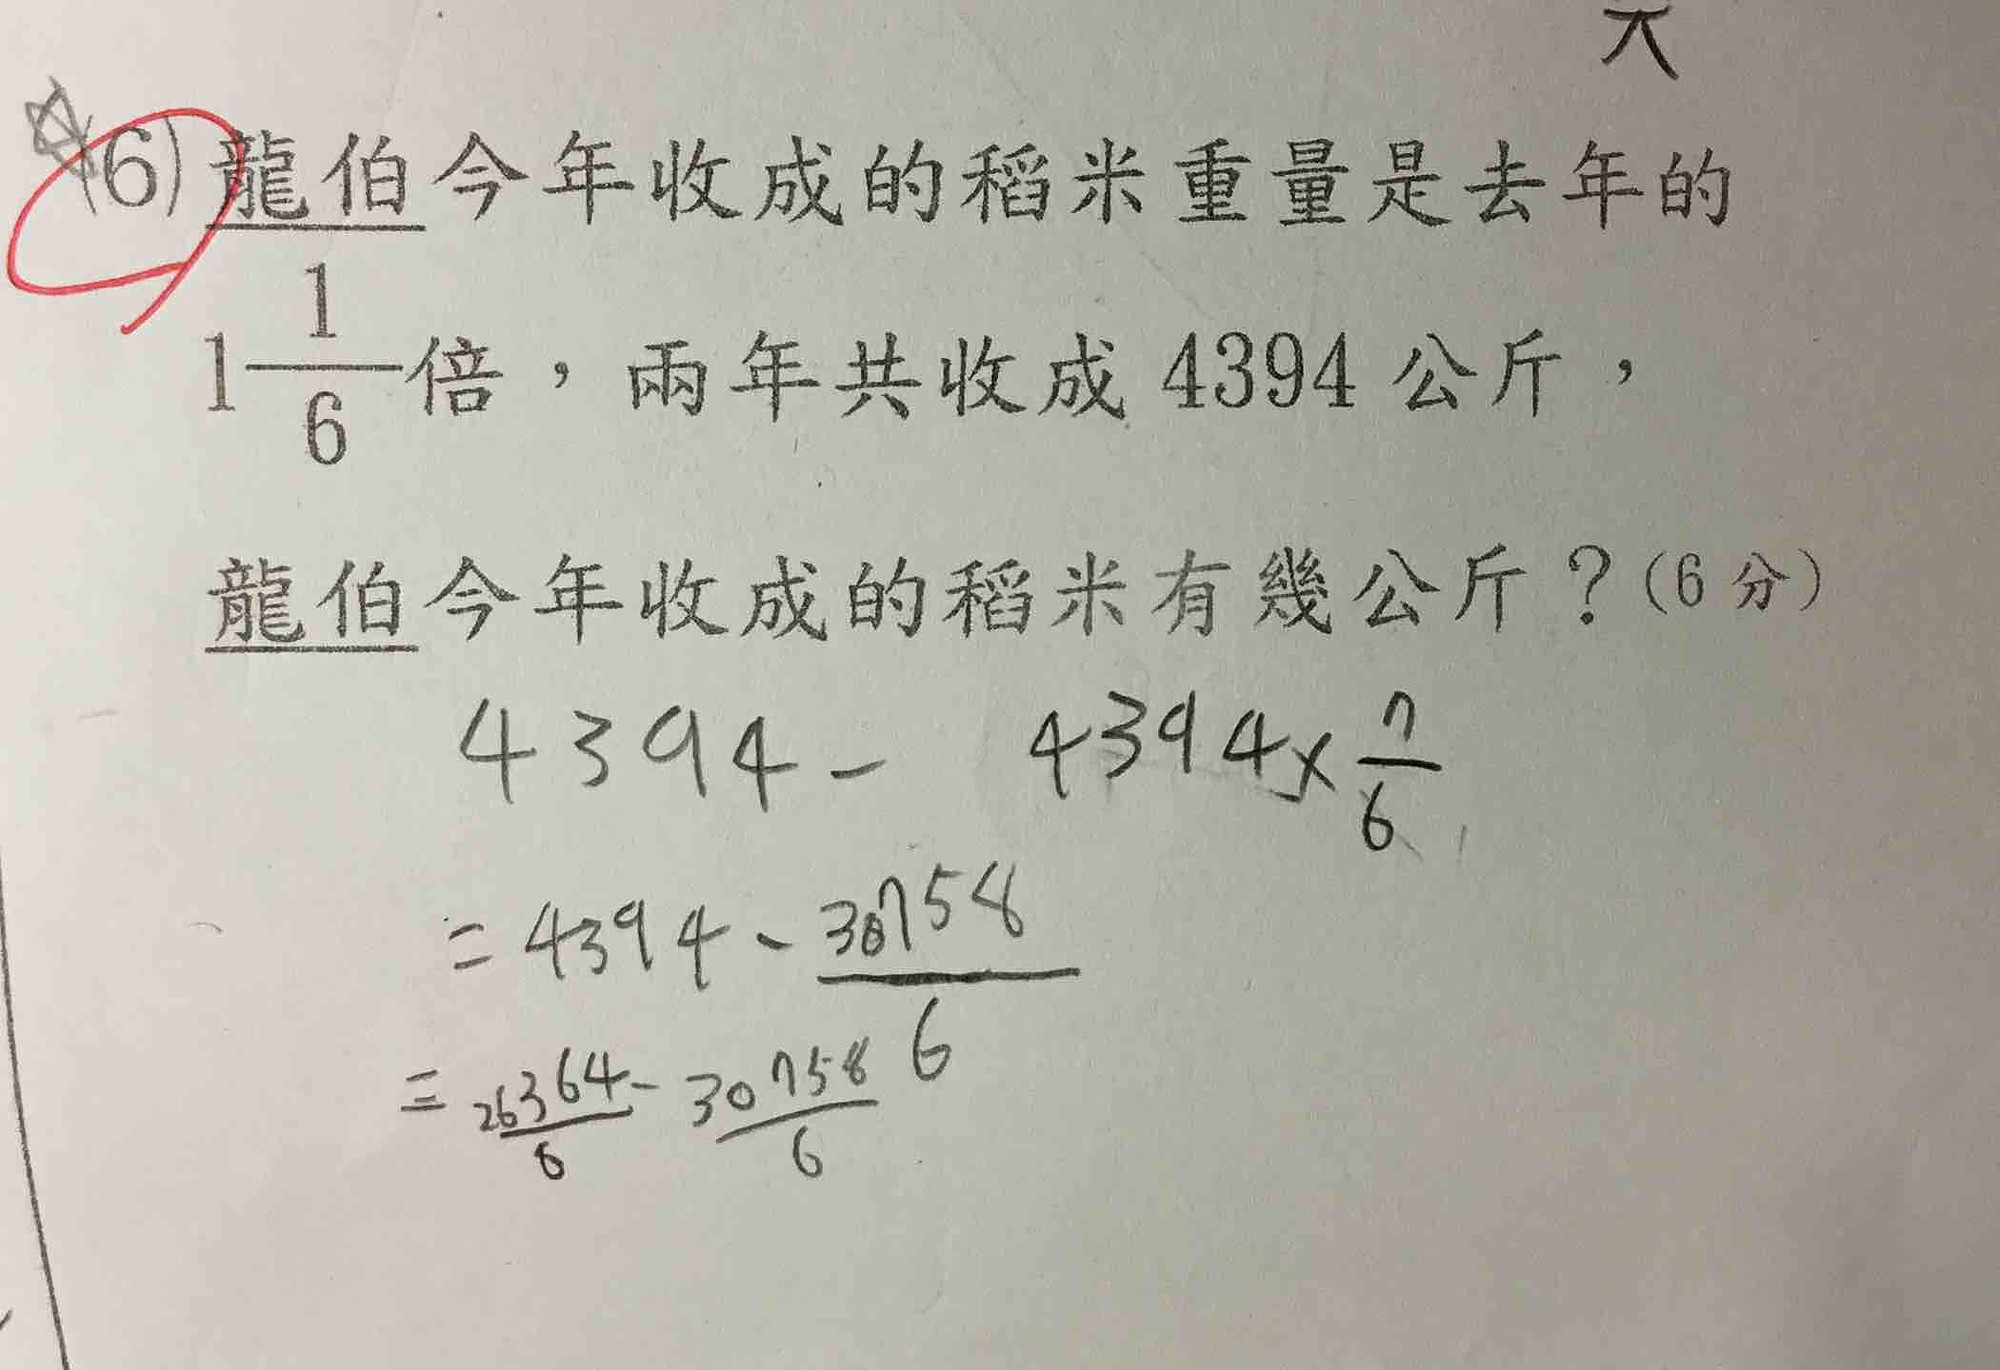 大
(6)龍伯今年收成的稻米重量是去年的
1 1/6 倍，兩年共收成 4394 公斤，
龍伯今年收成的稻米有幾公斤？(6 分)
4394 - 4394 × 7/6
= 4394 - 30758/6
= 26364/6 - 30758/6